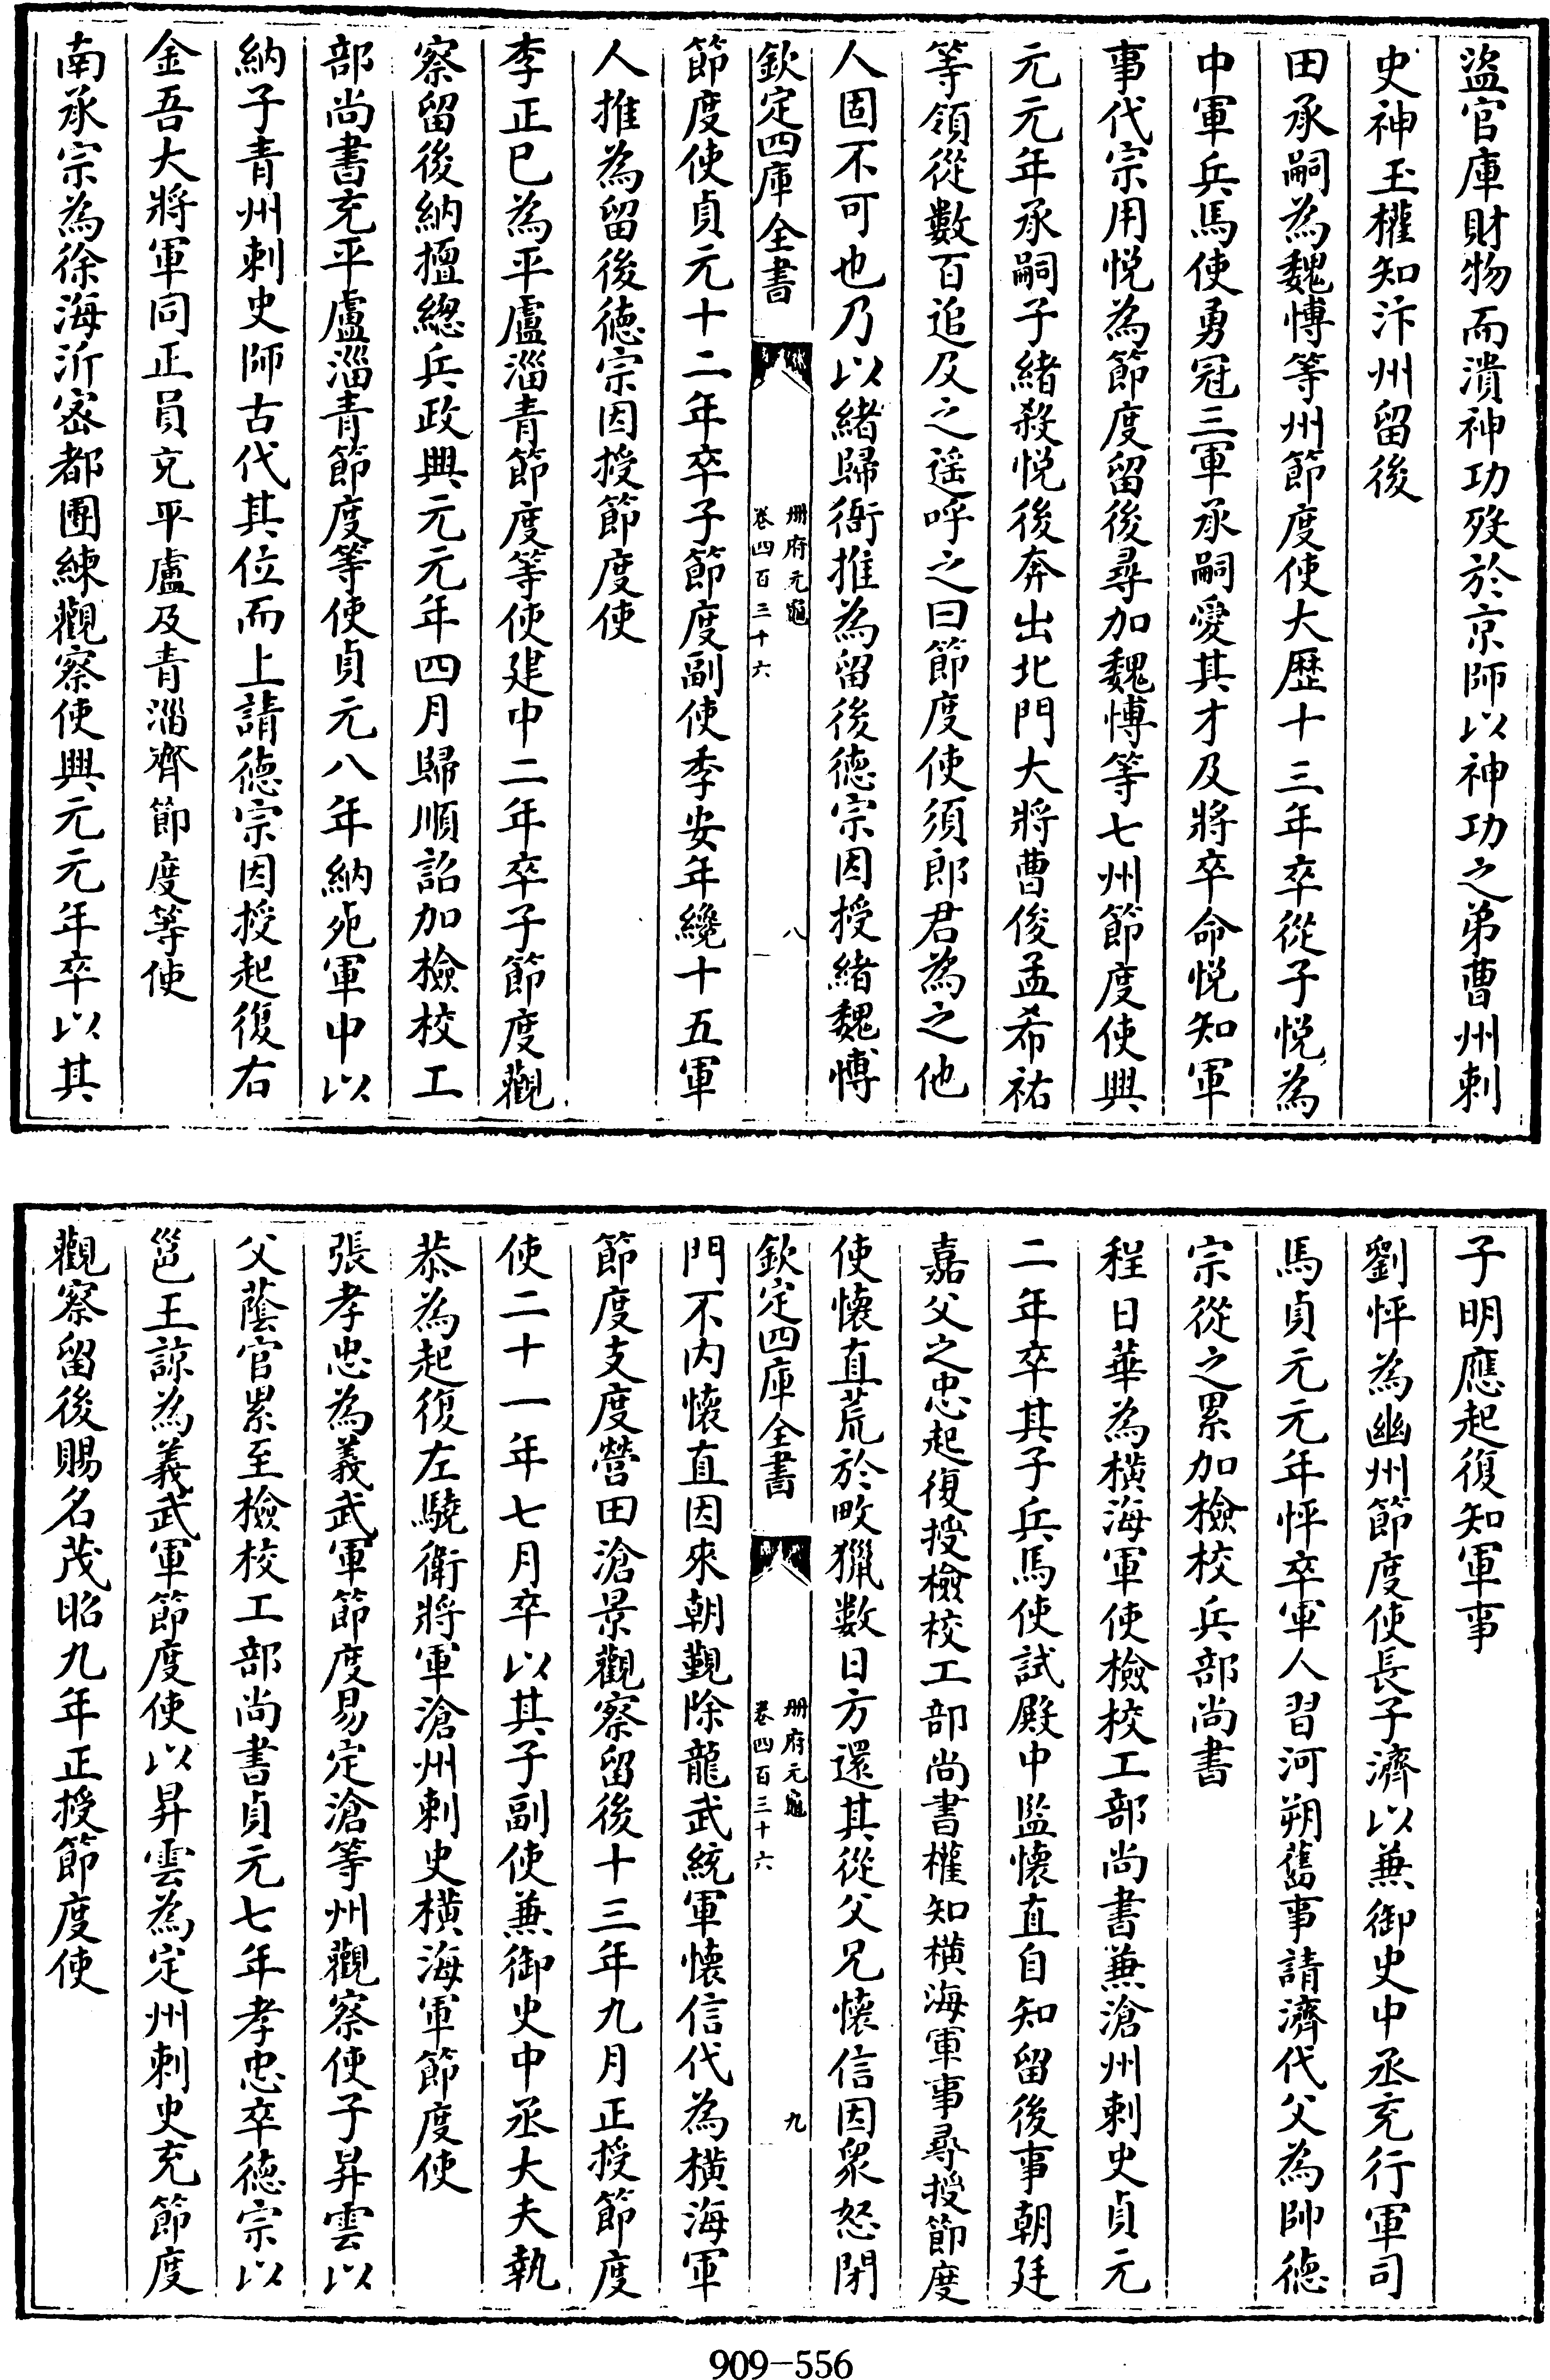 盜官庫財物而潰神功歿於京師以神功之弟曹州刺
史神玉權知汴州留後
田承嗣為魏博等州節度使大歴十三年卒從子悅為
中軍兵馬使勇冠三軍承嗣愛其才及將卒命悅知軍
事代宗用悅為節度留後尋加魏博等七州節度使興
元元年承嗣子緒殺悅後奔出北門大將曹俊孟希祐
等領從數百追及之遥呼之曰節度使須郎君為之他
人固不可也乃以緒歸衙推為留後德宗因授緒魏博
欽定四庫全書
冊府元龜
卷四百三十六
八
節度使貞元十二年卒子節度副使季安年纔十五軍
人推為留後德宗因授節度使
李正已為平盧淄青節度等使建中二年卒子節度觀
察留後納擅總兵政興元元年四月歸順詔加檢校工
部尚書充平盧淄青節度等使貞元八年納死軍中以
納子青州刺史師古代其位而上請德宗因授起復右
金吾大將軍同正員充平盧及青淄齊節度等使
南承宗為徐海沂宻都團練觀察使興元元年卒以其
子明應起復知軍事
劉怦為幽州節度使長子濟以兼御史中丞充行軍司
馬貞元元年怦卒軍人習河朔舊事請濟代父為帥德
宗從之累加檢校兵部尚書
程日華為横海軍使檢校工部尚書兼滄州刺史貞元
二年卒其子兵馬使試殿中監懐直自知留後事朝廷
嘉父之忠起復授檢校工部尚書權知横海軍事尋授節度
使懐直荒於畋獵數日方還其從父兄懐信因衆怒閉
欽定四庫全書
冊府元龜
卷四百三十六
九
門不内懐直因來朝覲除龍武統軍懐信代為横海軍
節度支度營田滄景觀察留後十三年九月正授節度
使二十一年七月卒以其子副使兼御史中丞大夫執
恭為起復左驍衛將軍滄州刺史横海軍節度使
張孝忠為義武軍節度易定滄等州觀察使子昇雲以
父蔭官累至檢校工部尚書貞元七年孝忠卒德宗以
邕王諒為義武軍節度使以昇雲為定州刺史充節度
觀察留後賜名茂昭九年正授節度使
909-556